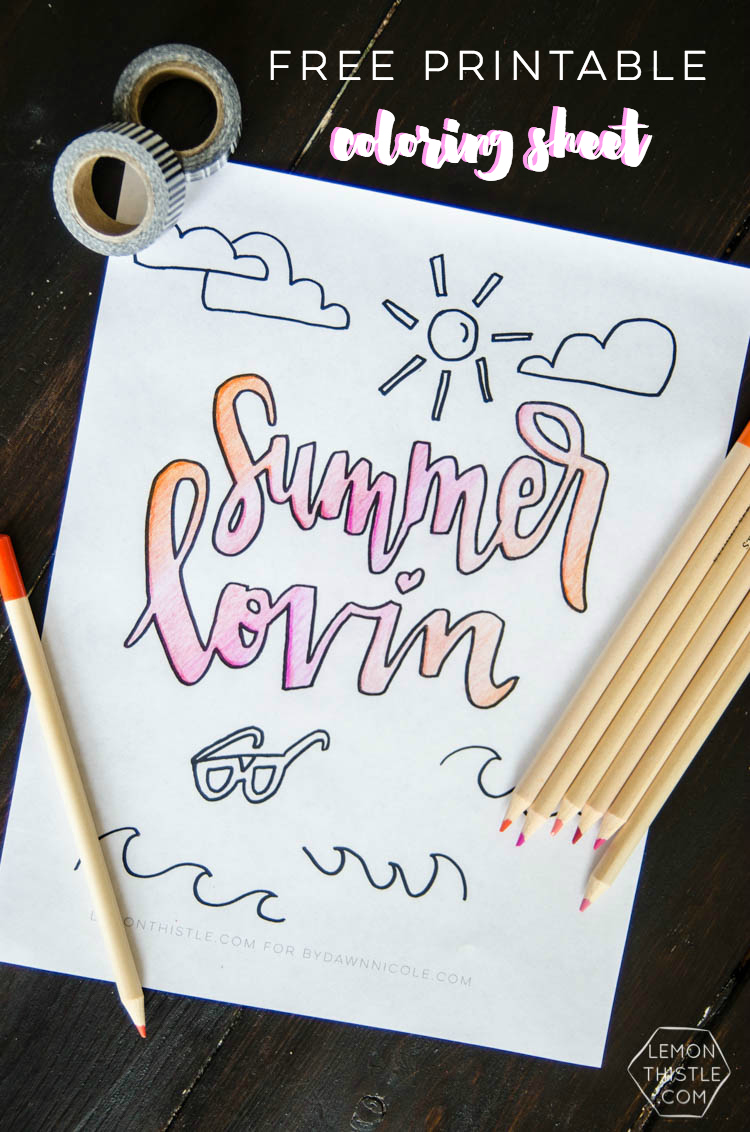 FREE PRINTABLE
coloring sheet
summer
lovin
LEMONTHISTLE.COM FOR BYDAWNNICOLE.COM
LEMON
THISTLE
.COM